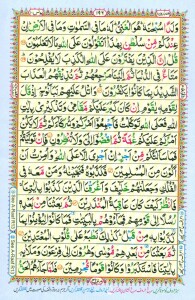 وَلَدًا سُبْحٰنَهٗ هُوَ الْغَنِيُّ لَهٗ مَا فِي السَّمٰوٰتِ وَمَا فِي الْاَرْضِ اِنْ
عِنْدَكُمْ مِّنْ سُلْطٰنٍ بِهٰذَا اَتَقُوْلُوْنَ عَلَى اللّٰهِ مَا لَا تَعْلَمُوْنَ
قُلْ اِنَّ الَّذِيْنَ يَفْتَرُوْنَ عَلَى اللّٰهِ الْكَذِبَ لَا يُفْلِحُوْنَ مَتَاعٌ
فِي الدُّنْيَا ثُمَّ اِلَيْنَا مَرْجِعُهُمْ ثُمَّ نُذِيْقُهُمُ الْعَذَابَ
الشَّدِيْدَ بِمَا كَانُوْا يَكْفُرُوْنَ وَاتْلُ عَلَيْهِمْ نَبَاَ نُوْحٍ اِذْ قَالَ
لِقَوْمِهٖ يٰقَوْمِ اِنْ كَانَ كَبُرَ عَلَيْكُمْ مَّقَامِيْ وَتَذْكِيْرِيْ بِاٰيٰتِ
اللّٰهِ فَعَلَى اللّٰهِ تَوَكَّلْتُ فَاَجْمِعُوْٓا اَمْرَكُمْ وَشُرَكَآءَكُمْ ثُمَّ لَا
يَكُنْ اَمْرُكُمْ عَلَيْكُمْ غُمَّةً ثُمَّ اقْضُوْٓا اِلَيَّ وَلَا تُنْظِرُوْنِ فَاِنْ
تَوَلَّيْتُمْ فَمَا سَاَلْتُكُمْ مِّنْ اَجْرٍ اِنْ اَجْرِيَ اِلَّا عَلَى اللّٰهِ وَاُمِرْتُ
اَنْ اَكُوْنَ مِنَ الْمُسْلِمِيْنَ فَكَذَّبُوْهُ فَنَجَّيْنٰهُ وَمَنْ مَّعَهٗ فِي
الْفُلْكِ وَجَعَلْنٰهُمْ خَلٰٓئِفَ وَاَغْرَقْنَا الَّذِيْنَ كَذَّبُوْا بِاٰيٰتِنَا
فَانْظُرْ كَيْفَ كَانَ عَاقِبَةُ الْمُنْذَرِيْنَ ثُمَّ بَعَثْنَا مِنْۢ بَعْدِهٖ
رُسُلًا اِلٰى قَوْمِهِمْ فَجَآءُوْهُمْ بِالْبَيِّنٰتِ فَمَا كَانُوْا لِيُؤْمِنُوْا بِمَا
كَذَّبُوْا بِهٖ مِنْ قَبْلُ كَذٰلِكَ نَطْبَعُ عَلٰى قُلُوْبِ الْمُعْتَدِيْنَ
ثُمَّ بَعَثْنَا مِنْۢ بَعْدِهِمْ مُّوْسٰى وَهٰرُوْنَ اِلٰى فِرْعَوْنَ وَمَلَا۟ئِهٖ
بِاٰيٰتِنَا فَاسْتَكْبَرُوْا وَكَانُوْا قَوْمًا مُّجْرِمِيْنَ فَلَمَّا جَآءَهُمُ